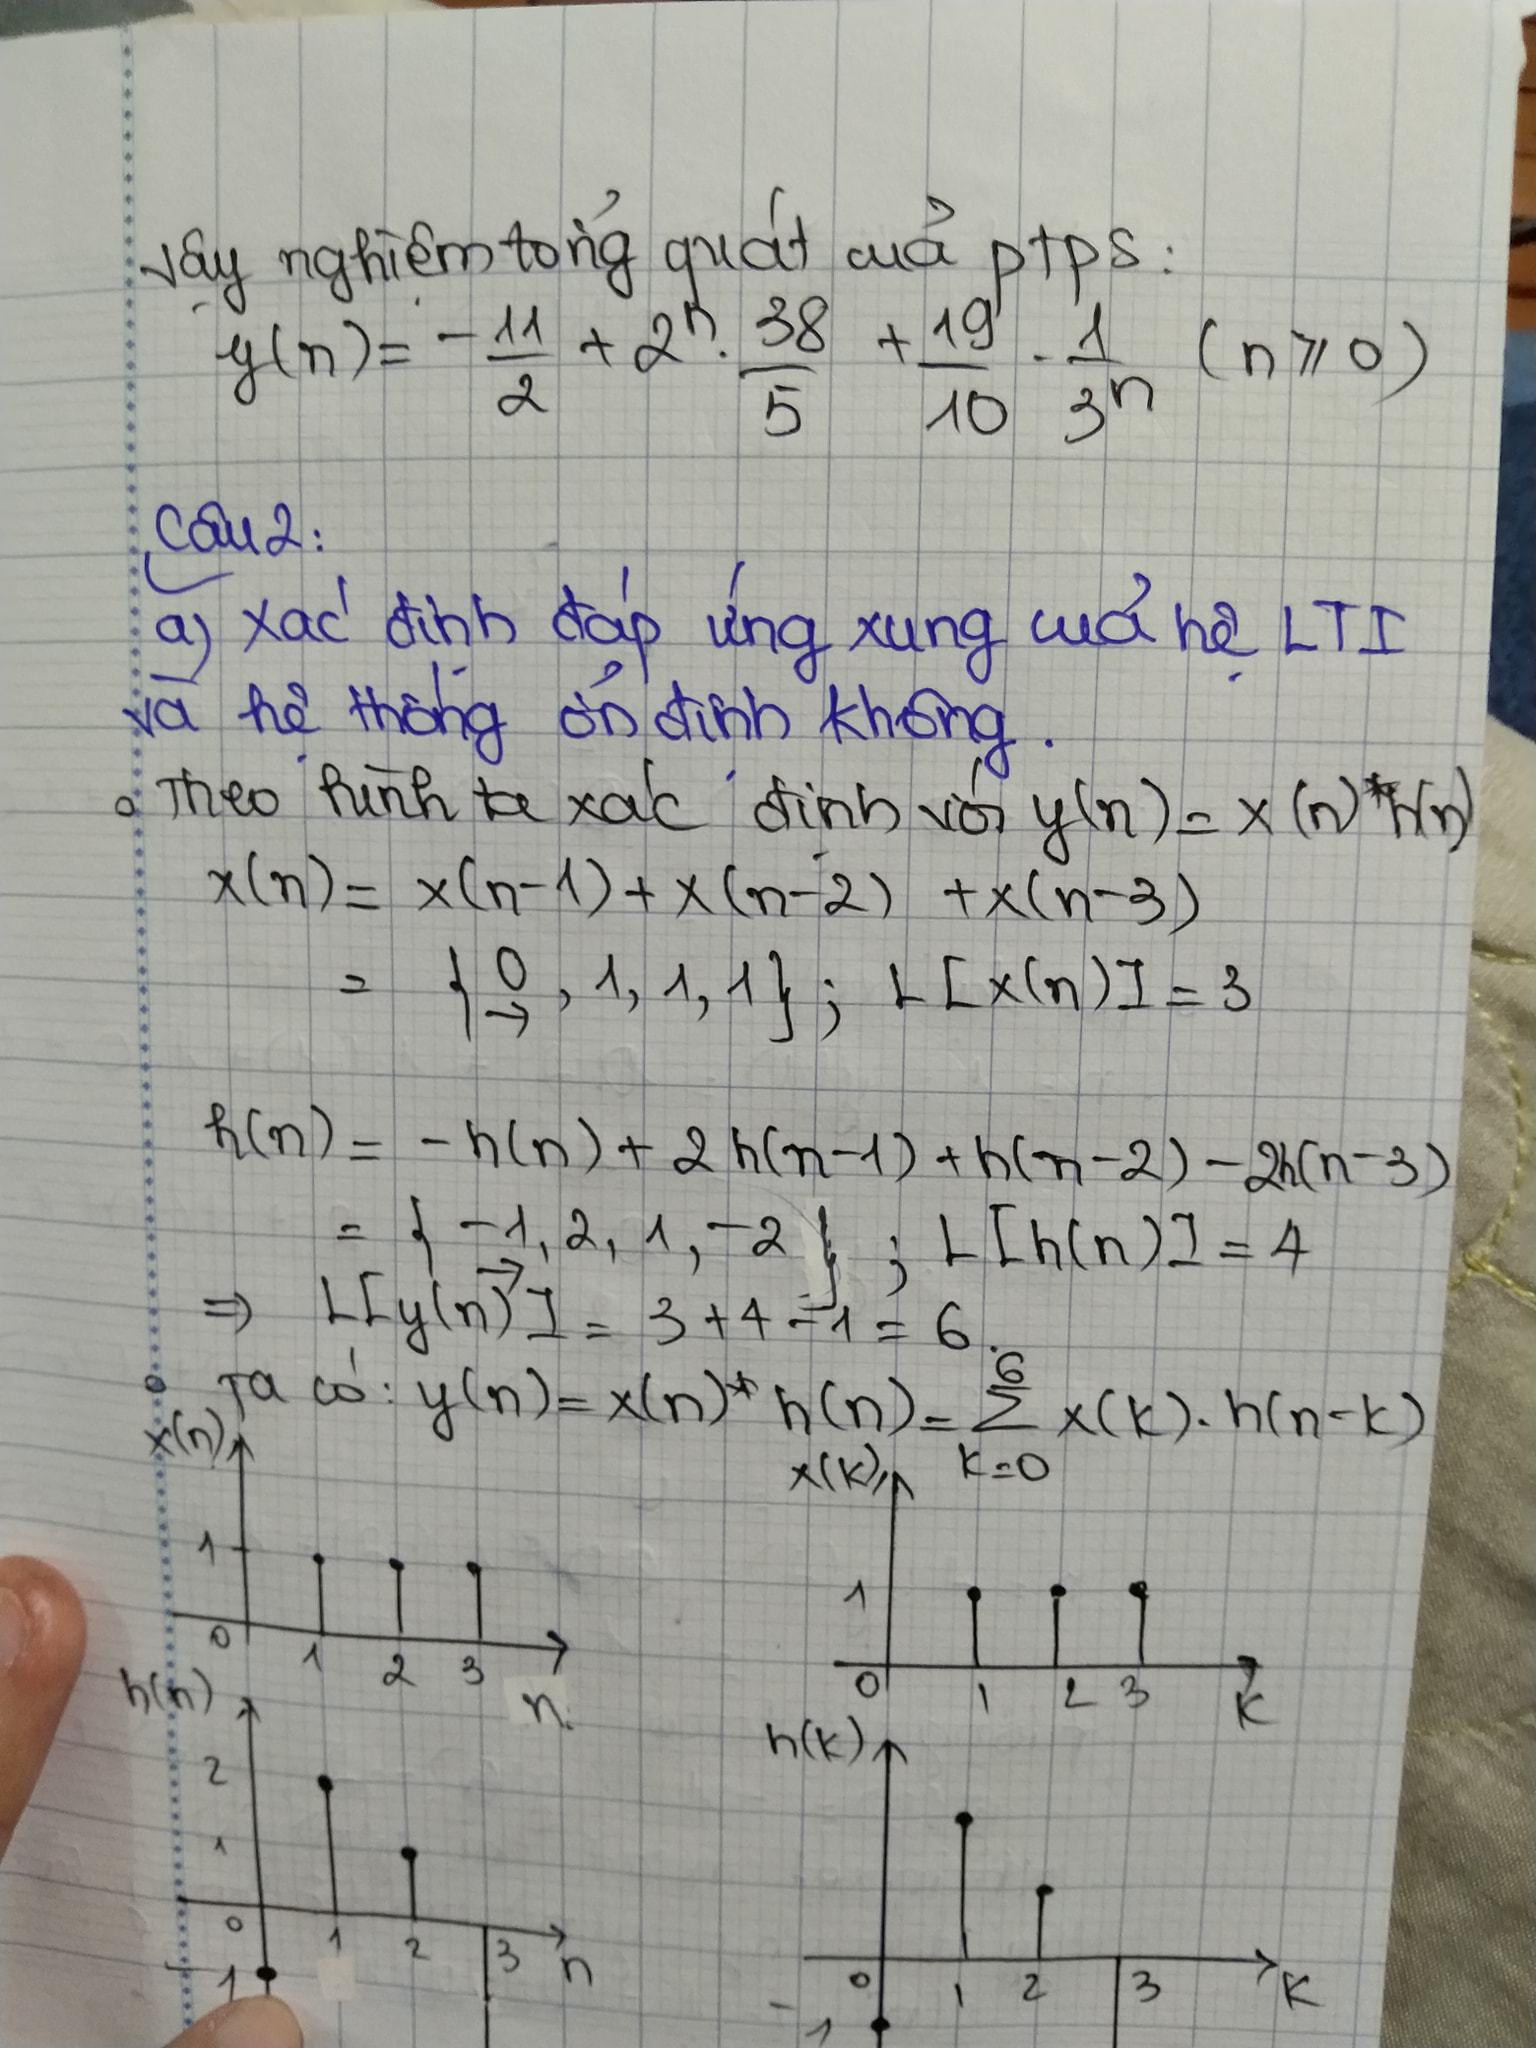 Vậy nghiệm tổng quát của ptps:
y(n) = -11/2 + 2^n . 38/5 + 19/10 . 1/3^n (n ≥ 0)
Câu 2:
a) Xác định đáp ứng xung của hệ LTI
và hệ thống ổn định không.
Theo hình ta xác định với y(n) = x(n) * h(n)
x(n) = x(n-1) + x(n-2) + x(n-3)
= { 0, 1, 1, 1 } ; L[x(n)] = 3
→
h(n) = -h(n) + 2h(n-1) + h(n-2) - 2h(n-3)
= { -1, 2, 1, -2 } ; L[h(n)] = 4
→
⇒ L[y(n)] = 3 + 4 - 1 = 6.
Ta có: y(n) = x(n) * h(n) = 6∑k=0 x(k) . h(n-k)
x(n)
1
0 1 2 3 n
x(k)
1
0 1 2 3 k
h(n)
2
1
0 1 2 3 n
-1
h(k)
0 1 2 3 k
-1